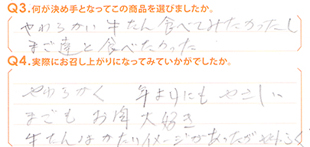 Q3.何が決め手となってこの商品を選びましたか。
やわらかい牛たん食べてみたかったし
まご達と食べたかった
Q4.実際にお召し上がりになってみていかがでしたか。
やわらかく 年よりにもやさしい
まごも お肉大好き
牛たんはかたいイメージがあったがやわらく